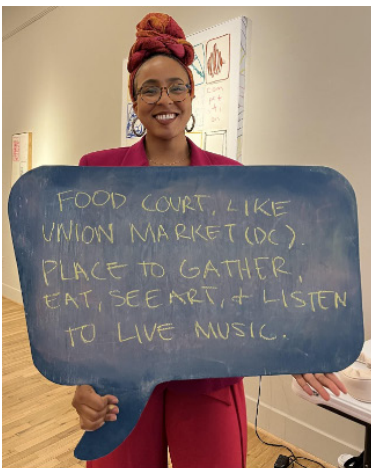 FOOD COURT, LIKE
UNION MARKET (DC).
PLACE TO GATHER,
EAT, SEE ART, + LISTEN
TO LIVE MUSIC.